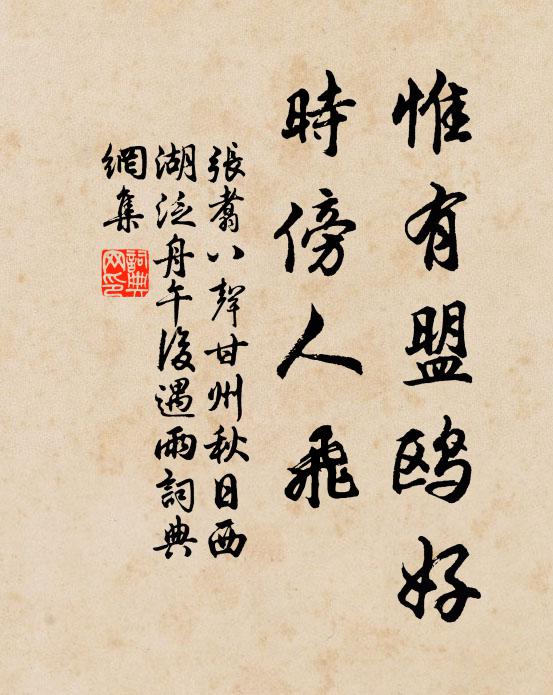 惟有盟鸥好
時傍人飛
張翥八聲甘州秋日西
湖泛舟午後遇雨詞典
網集
詞典
网印